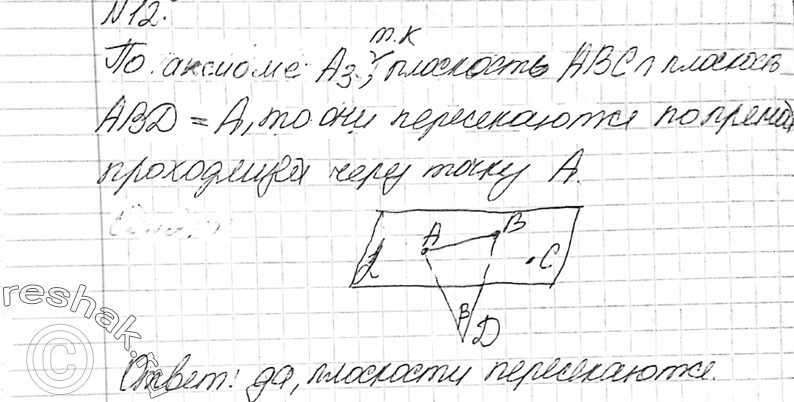 N12.
т.к
По аксиоме A3, плоскость ABC ∩ плоскость
ABD = A, то они пересекаются по прямой
проходящей через точку A.
A B
α C
β
D
Ответ: да, плоскости пересекаются.
reshak.ru
©